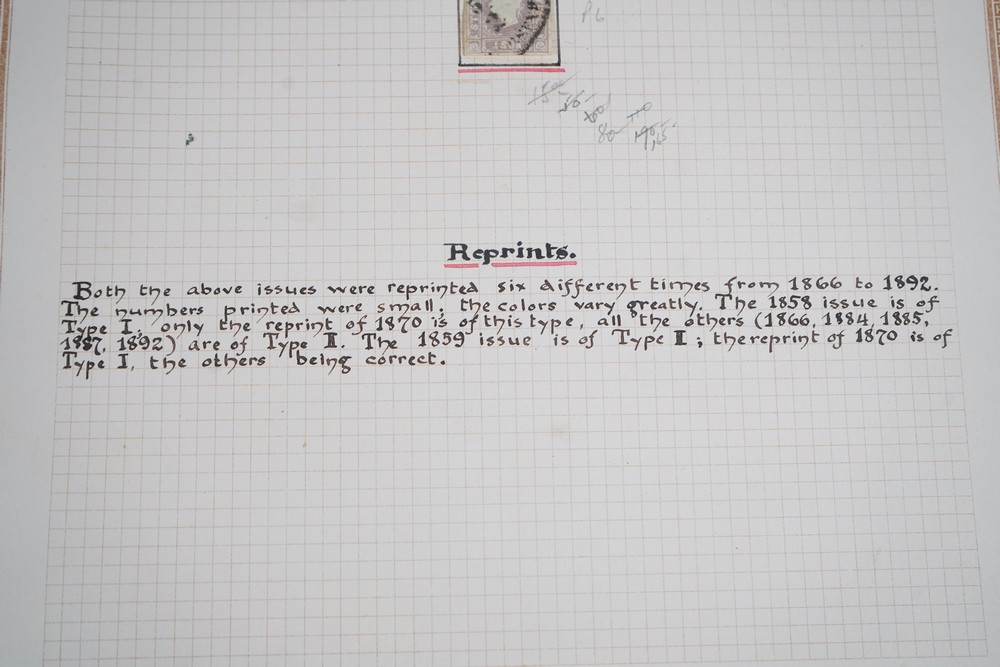 P6
Reprints.
Both the above issues were reprinted six different times from 1866 to 1892.
The numbers printed were small; the colors vary greatly. The 1858 issue is of
Type I; only the reprint of 1870 is of this type, all the others (1866, 1884, 1885,
1887, 1892) are of Type II. The 1859 issue is of Type II; the reprint of 1870 is of
Type I, the others being correct.